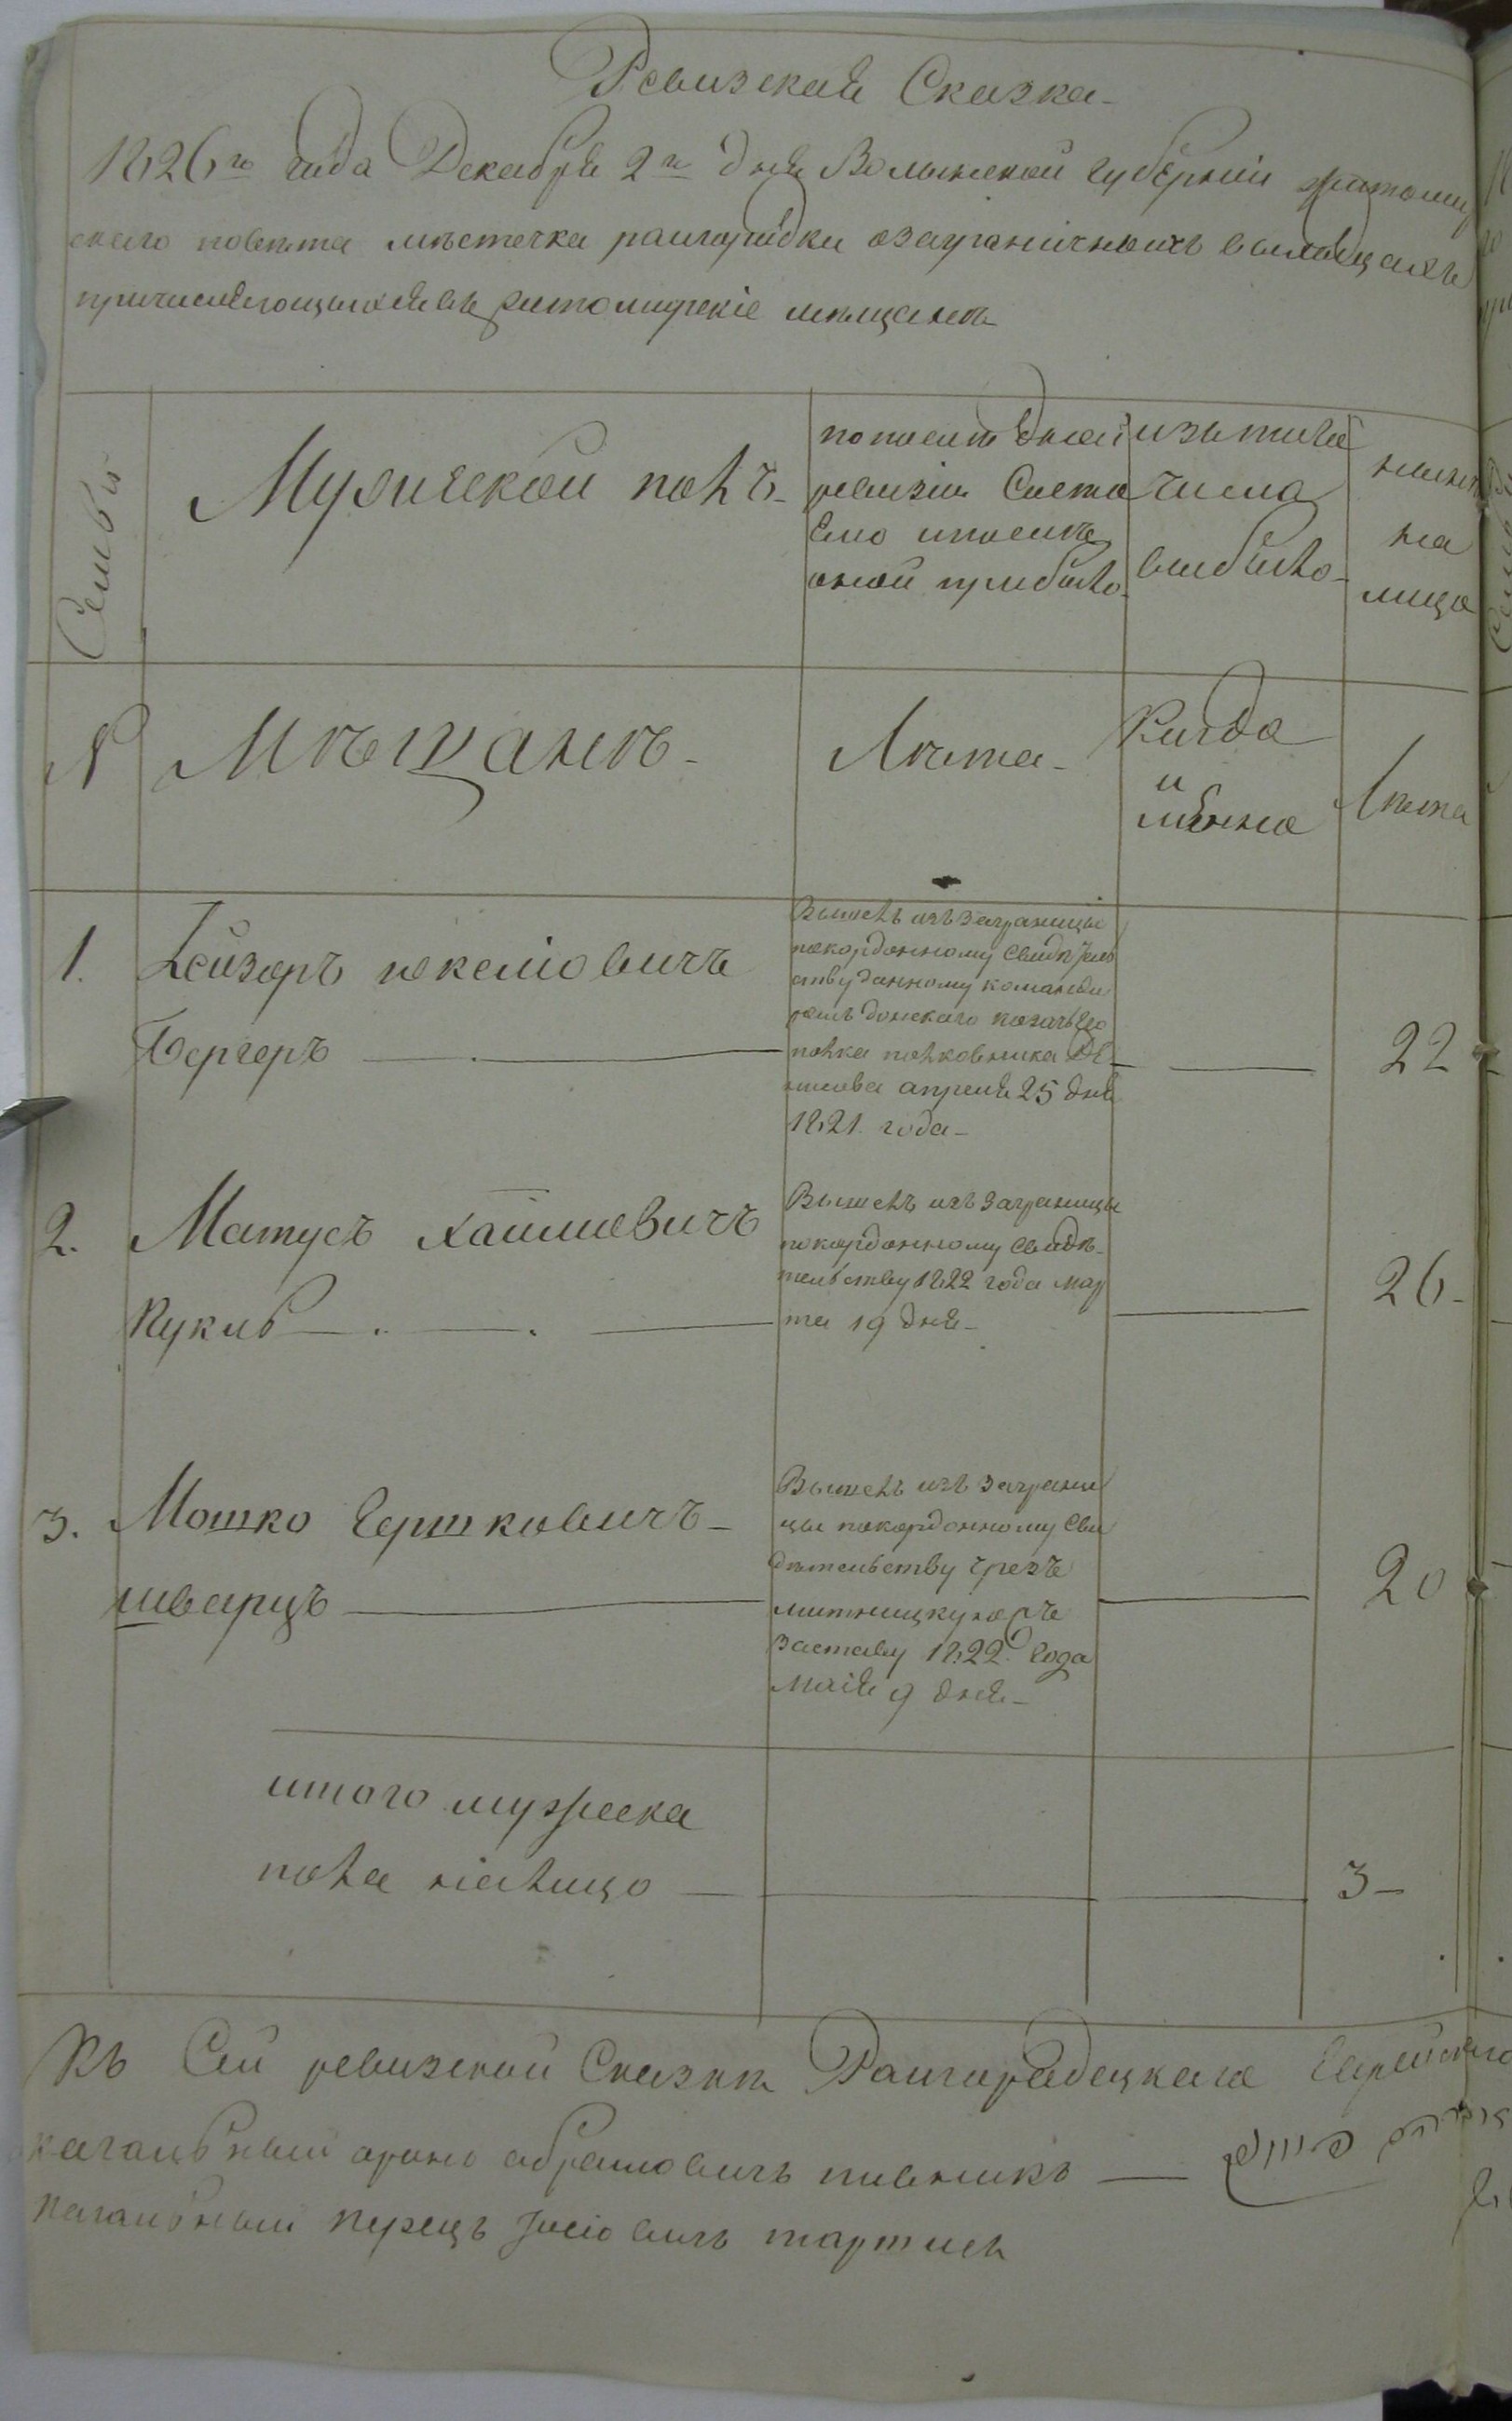 Ревизская Сказка
1826го года Декабря 2го дня Волынской губернии житомир
скаго повета местечка райгородки озаграничныхъ выходцахъ
причисляющихся въ житомирскіе мещане
Семьи
Мужеской полъ
попоследней
ревизии Состо
Ело ипосле
оной прибыло
изътого
числа
выбыло
ныне
на
лицо
№
Мѣщане
Лета
Когда
и
менно
Лета
1.
Лейзоръ
Бергеръ
Вышелъ изъ заграницы
покордонному Свидетель
ству данному команди
ромъ донскаго казачьего
полка полковника
апреля 25 дня
1821 года
22
2.
Матусъ хаимовичъ
Кукль
Вышелъ изъ заграницы
покордонному Свиде
тельству 1822 года мар
та 19 дня
26
3.
Мошко Гершковичъ
шварцъ
Вышелъ изъ заграни
цы покордонному Сви
детельству чрезъ
заставу 1822 Года
маія 9 дня
20
итого мужеска
пола налицо
3
Къ Сей ревизской Сказки Райгородецкаго Еврейскаго
кагальный абрамовичъ пивникъ
кагальный перецъ